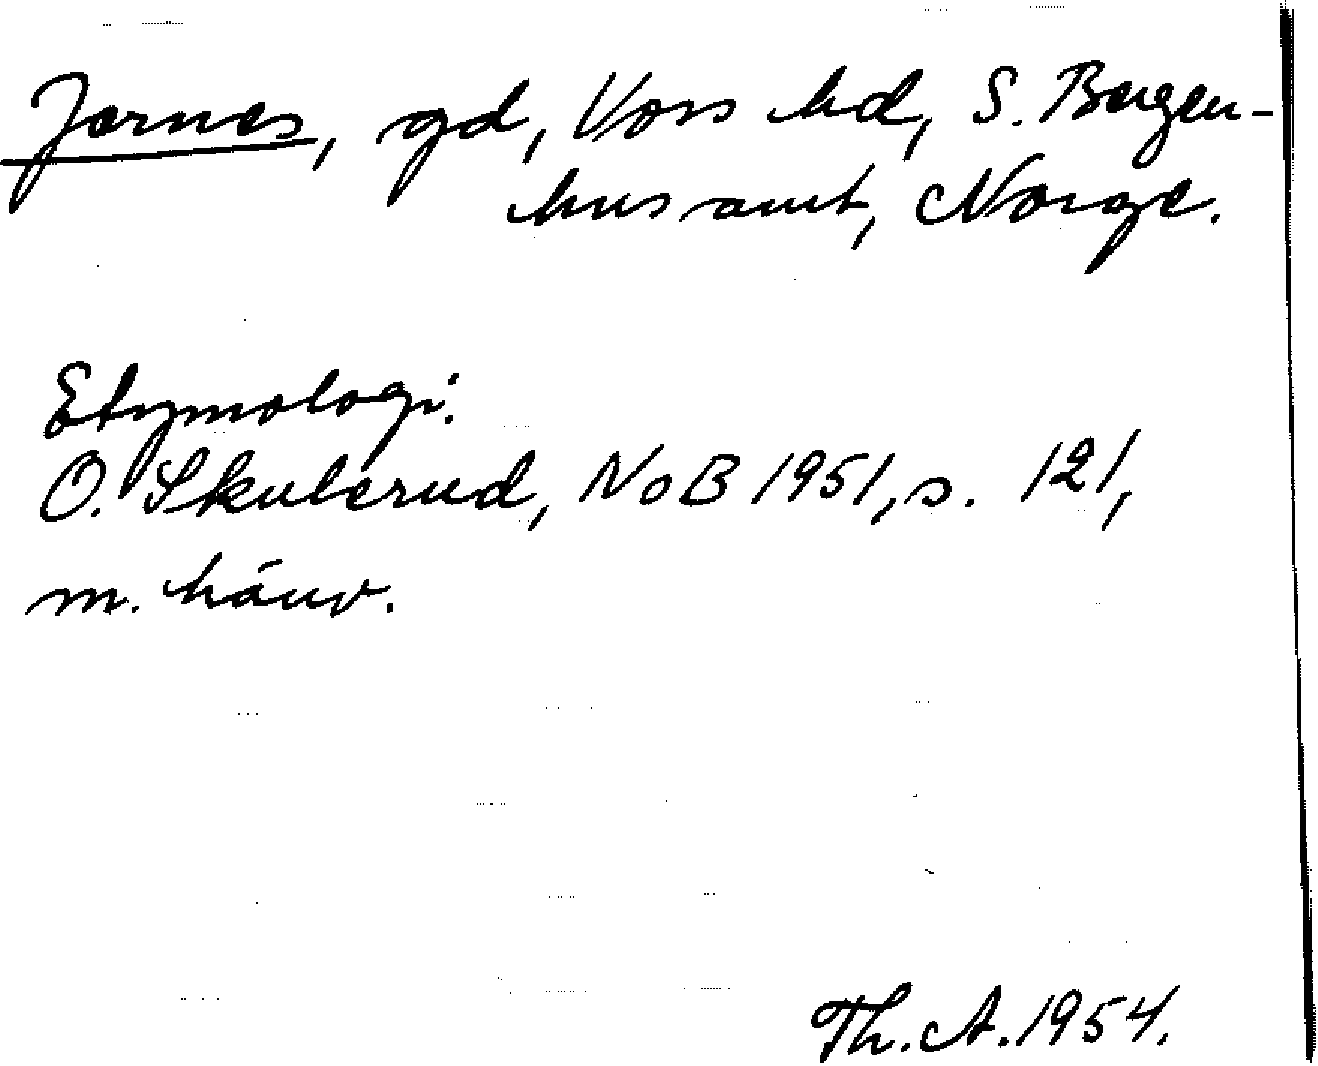 Jornes, gd, Voss hd, S. Bergen-
hus amt, Norge.
Etymologi:
O. Skulerud, NoB 1951, s. 121,
m. hänv.
Th. A. 1954.